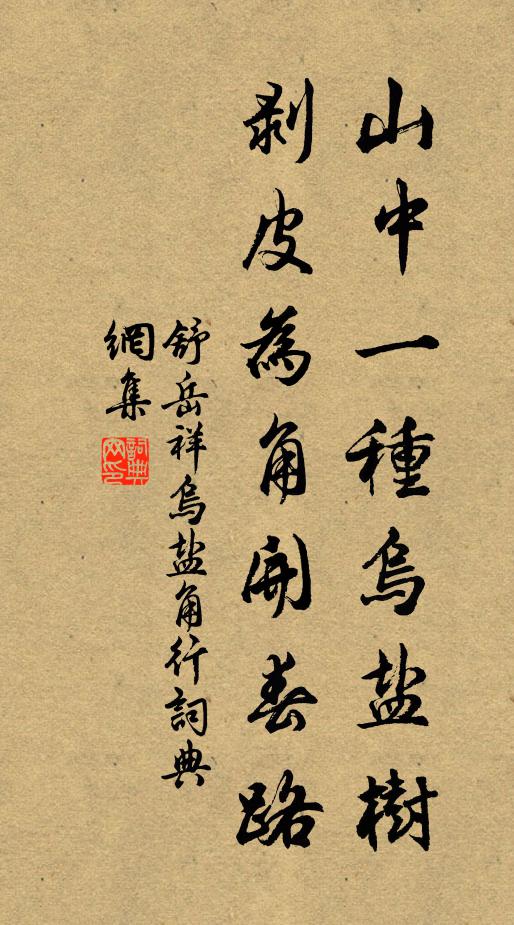 山中一種烏盐樹
剥皮為角開春路
舒岳祥烏盐角行詞典
網集
詞典網印